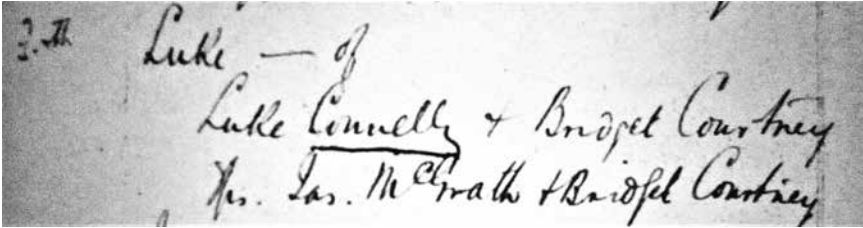 7.th Luke — of
Luke Connelly & Bridget Courtney
Jas. McGrath & Bridget Courtney